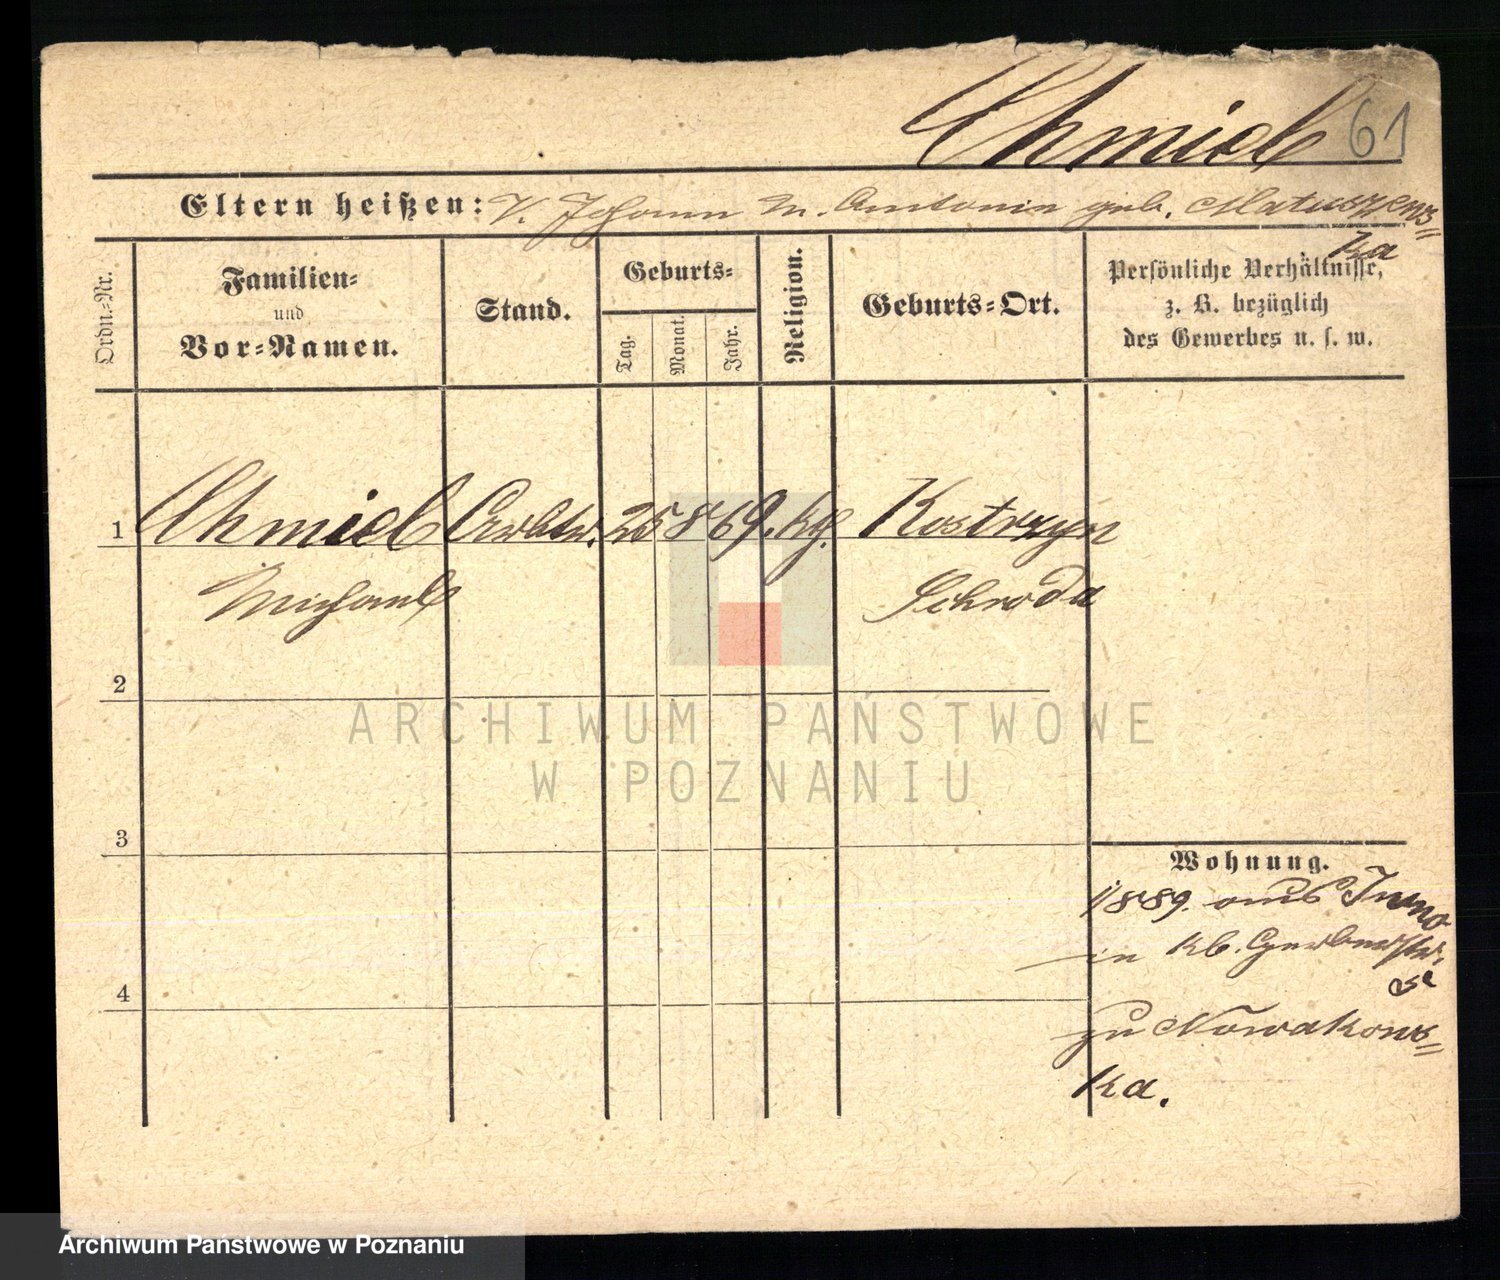 Chmiel 61
Eltern heißen: V. Johann M. Antonie geb. Matuszews=
ka
Ordn.-Nr.
Familien-
und
Vor-Namen.
Stand.
Geburts-
Tag.
Monat.
Jahr.
Religion.
Geburts-Ort.
Persönliche Verhältnisse,
z. B. bezüglich
des Gewerbes u. s. w.
1 Chmiel Arbtr. 25 8 69. kth. Kostrzyn
Michael Schroda
2
3
4
Wohnung.
1/889. aus
in kb. Gerberstr.
zu Nowakows=
ka.
ARCHIWUM PAŃSTWOWE
W POZNANIU
Archiwum Państwowe w Poznaniu